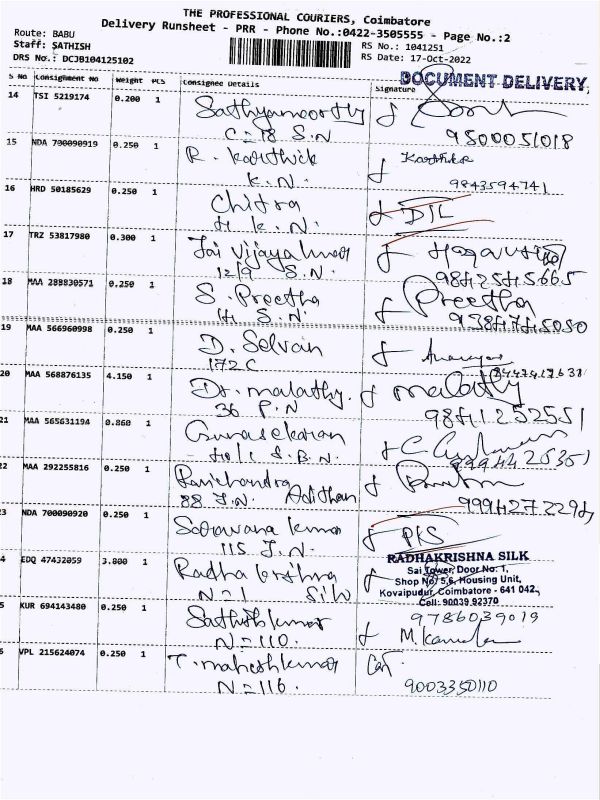 THE PROFESSIONAL COURIERS, Coimbatore
Delivery Runsheet - PRR - Phone No.:0422-3505555 - Page No.:2
Route: BABU
Staff: SATHISH
RS No.: 1041251
DRS No.: DCJB104125102
RS Date: 17-Oct-2022
DOCUMENT DELIVERY
S No Consignment No Weight PCS Consignee Details Signature
14 TSI 5219174 0.200 1 Sathyamoorthy
C=18 S.N 9500051018
15 NDA 700090919 0.250 1 R. Karthick Karthika
K.N. 9843594741
16 HRD 50185629 0.250 1 Chitra D/L
H K.N.
17 TRZ 53817980 0.300 1 Jai Vijayalaxmi
12/9 S.N.
18 MAA 288830571 0.250 1 S. Preetha Preetha
H S.N.
19 MAA 566960998 0.250 1 D. Selvan
172C
20 MAA 568876135 4.150 1 Dr. Malathy. Malathy
36 P.N
21 MAA 565631194 0.860 1 Gunasekaran
S.B.N.
22 MAA 292255816 0.250 1 Ravichandra
88 J.N. Adithan
23 NDA 700090920 0.250 1 Saravana Kumar PKS
115 J.N.
4 EDQ 47432059 3.800 1 Radha Krishna
N=1 Silk
RADHAKRISHNA SILK
Sai Tower, Door No. 1,
Shop No. 5,6, Housing Unit,
Kovaipudur, Coimbatore - 641 042.
Cell: 90039 92370
5 KUR 694143480 0.250 1 Sathishkumar 9786039019
N=110.
6 VPL 215624074 0.250 1 T. Maheshkumar
N=116. 9003350110